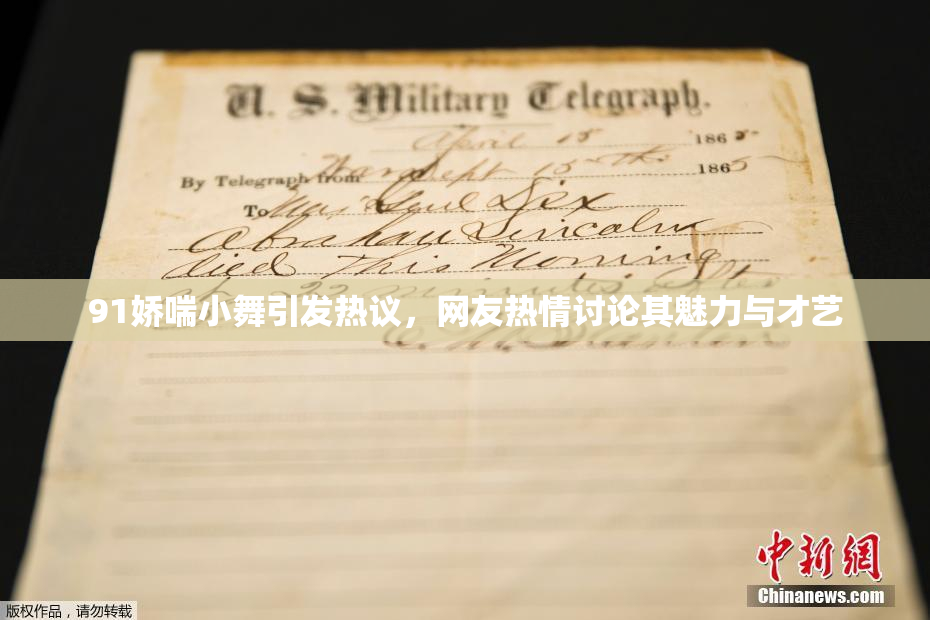 U. S. Military Telegraph.
April 15 1865
By Telegraph from War Dept 15th 1865
To Maj Genl Dix
Abraham Lincoln
died This Morning
at 22 minutes after
91娇喘小舞引发热议，网友热情讨论其魅力与才艺
E. M. Stanton
中新網
Chinanews.com
版权作品，请勿转载